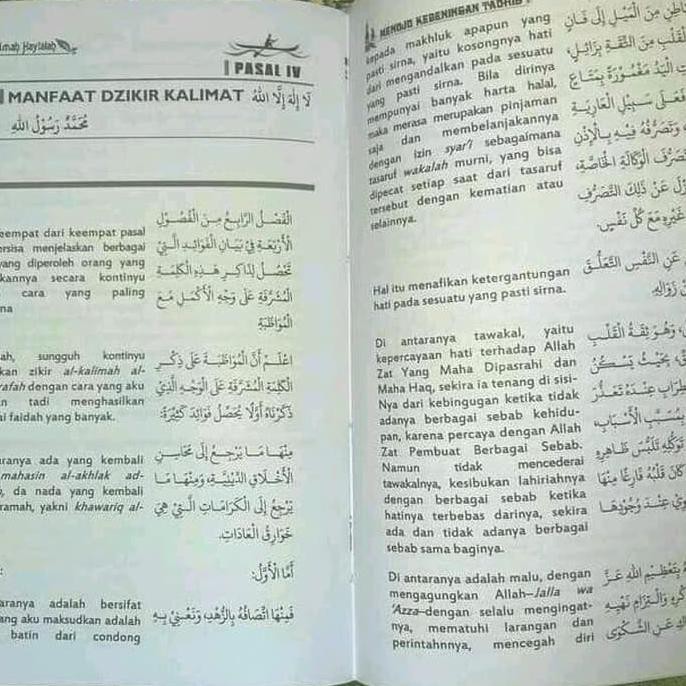 Haylalah
PASAL IV
MANFAAT DZIKIR KALIMAT لَا إِلٰهَ إِلَّا اللهُ
مُحَمَّدٌ رَسُوْلُ اللهِ
keempat dari keempat pasal
menjelaskan berbagai
yang diperoleh orang yang
secara kontinyu
cara yang paling
الْفَصْلُ الرَّابِعُ مِنَ الْفُصُوْلِ
الْأَرْبَعَةِ فِيْ بَيَانِ الْفَوَائِدِ الَّتِيْ
تَحْصُلُ لِذَاكِرِ هٰذِهِ الْكَلِمَةِ
الْمُشَرَّفَةِ عَلَى وَجْهِ الْأَكْمَلِ مَعَ
الْمُوَاظَبَةِ
sungguh kontinyu
zikir al-kalimah al-
dengan cara yang aku
tadi menghasilkan
faidah yang banyak.
اِعْلَمْ أَنَّ الْمُوَاظَبَةَ عَلَى ذِكْرِ
الْكَلِمَةِ الْمُشَرَّفَةِ عَلَى الْوَجْهِ الَّذِيْ
ذَكَرْنَاهُ أَوَّلًا يُحَصِّلُ فَوَائِدَ كَثِيْرَةً:
ada yang kembali
mahasin al-akhlak ad-
da nada yang kembali
yakni khawariq al-
مِنْهَا مَا يَرْجِعُ إِلَى مَحَاسِنِ
الْأَخْلَاقِ الدِّيْنِيَّةِ، وَمِنْهَا مَا
يَرْجِعُ إِلَى الْكَرَامَاتِ الَّتِيْ هِيَ
خَوَارِقُ الْعَادَاتِ.
أَمَّا الْأَوَّلُ:
adalah bersifat
yang aku maksudkan adalah
batin dari condong
فَمِنْهَا اتِّصَافُهُ بِالزُّهْدِ، وَنَعْنِيْ بِهِ
MENUJU KEBENINGAN TAUHID
kepada makhluk apapun yang
pasti sirna, yaitu kosongnya hati
dari mengandalkan pada sesuatu
yang pasti sirna. Bila dirinya
mempunyai banyak harta halal,
maka merasa merupakan pinjaman
saja dan membelanjakannya
dengan izin syar'i sebagaimana
tasaruf wakalah murni, yang bisa
dipecat setiap saat dari tasaruf
tersebut dengan kematian atau
selainnya.
مِنَ الْمَيْلِ إِلَى فَانٍ
الْقَلْبِ مِنَ الثِّقَةِ بِزَائِلٍ،
الْيَدُ مَغْمُوْرَةً بِمَتَاعٍ
فَعَلَى سَبِيْلِ الْعَارِيَةِ
وَتَصَرُّفُهُ فِيْهِ بِالْإِذْنِ
تَصَرُّفَ الْوَكَالَةِ الْخَاصَّةِ،
عَنْ ذٰلِكَ التَّصَرُّفِ
غَيْرِهِ مَعَ كُلِّ نَفَسٍ.
Hal itu menafikan ketergantungan
hati pada sesuatu yang pasti sirna.
عَنِ النَّفْسِ التَّعَلُّقَ
زَوَالِهِ
Di antaranya tawakal, yaitu
kepercayaan hati terhadap Allah
Zat Yang Maha Dipasrahi dan
Maha Haq, sekira ia tenang di sisi-
Nya dari kebingungan ketika tidak
adanya berbagai sebab kehidu-
pan, karena percaya dengan Allah
Zat Pembuat Berbagai Sebab.
Namun tidak mencederai
tawakalnya, kesibukan lahiriahnya
dengan berbagai sebab ketika
hatinya terbebas darinya, sekira
ada dan tidak adanya berbagai
sebab sama baginya.
وَهُوَ ثِقَةُ الْقَلْبِ
بِحَيْثُ يَسْكُنُ
عِنْدَ تَعَذُّرِ
بِمُسَبِّبِ الْأَسْبَابِ،
تَوَكُّلَهُ تَلَبُّسُ ظَاهِرِهِ
كَانَ قَلْبُهُ فَارِغًا مِنْهَا
عِنْدَهُ وُجُوْدُهَا
Di antaranya adalah malu, dengan
mengagungkan Allah–Jalla wa
'Azza–dengan selalu mengingat-
nya, mematuhi larangan dan
perintahnnya, mencegah diri
بِتَعْظِيْمِ اللهِ عَزَّ
وَالْتِزَامِ نَهْيِهِ
عَنِ الشَّكْوَى